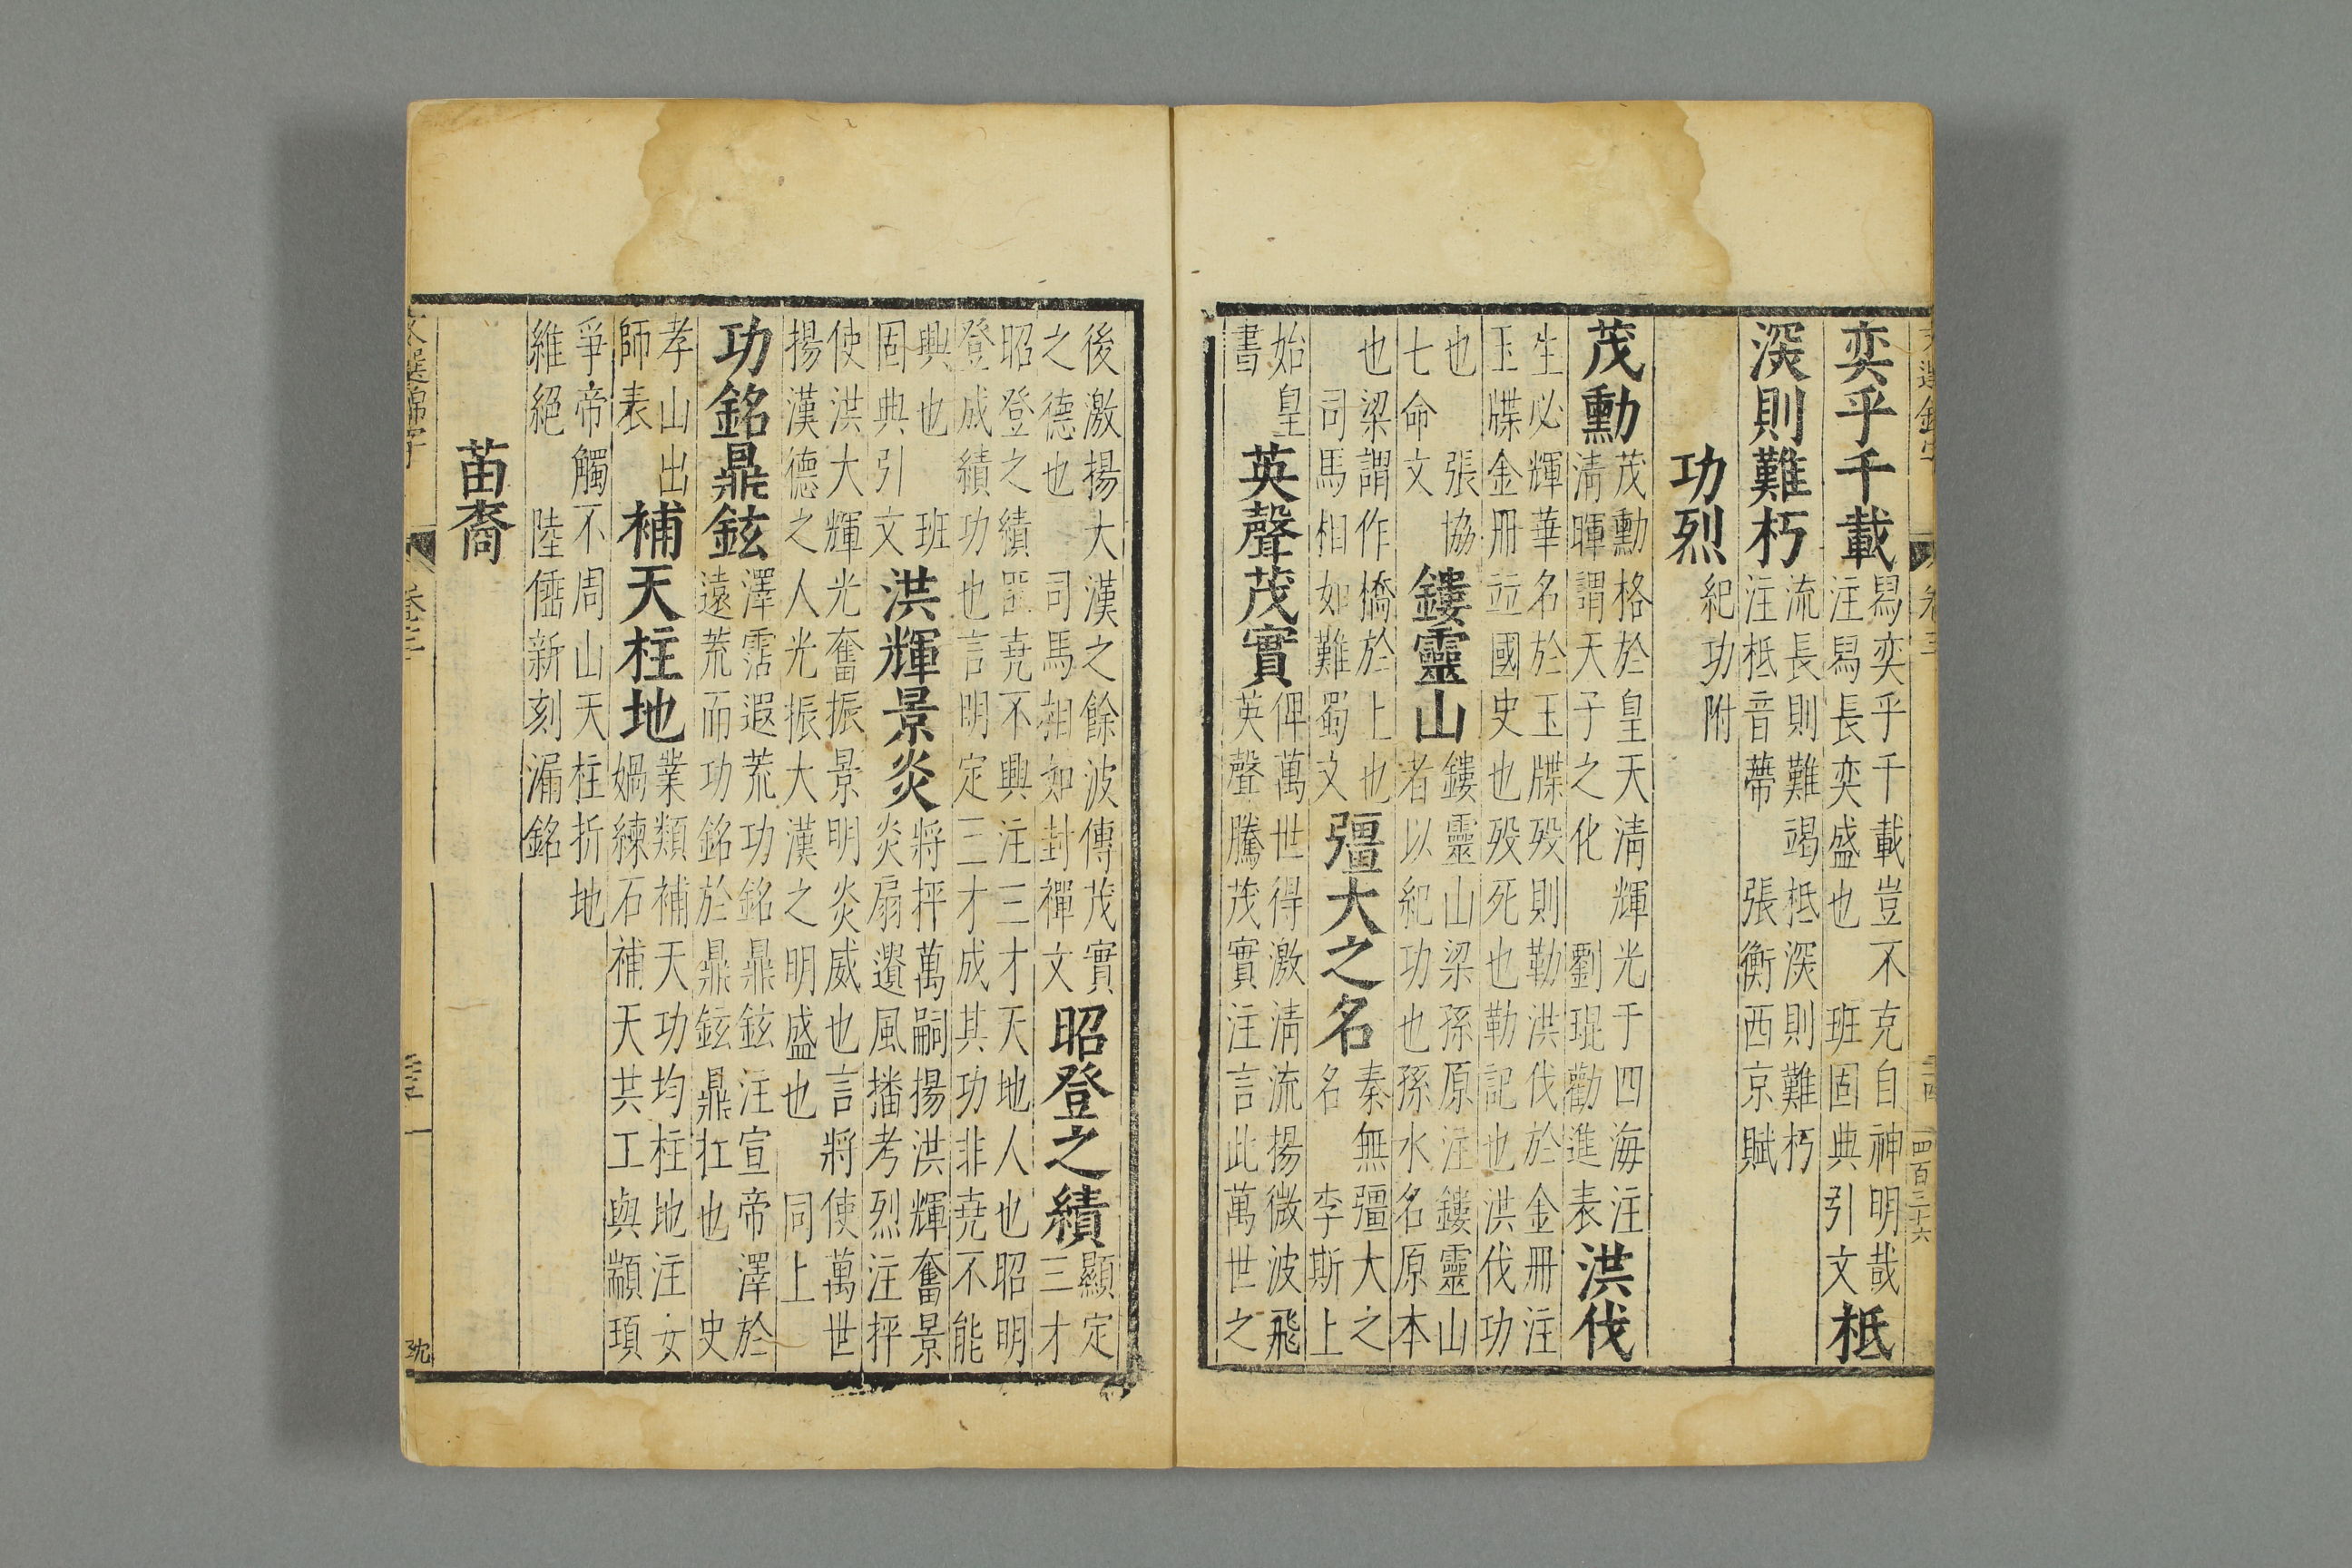 卷三
四百三十六
奕乎千載
舄奕乎千載豈不克自神明哉
注舄長奕盛也　班固典引文
柢
深則難朽
流長則難竭柢深則難朽
注柢音蔕　張衡西京賦
功烈
紀功附
茂勳
茂勳格於皇天清輝光于四海注
清暉謂天子之化　劉琨勸進表
洪伐
生必輝華名於玉牒歿則勒洪伐於金冊注
玉牒金冊並國史也歿死也勒記也洪伐功
也　張協
七命文
鏤靈山
鏤靈山梁孫原注鏤靈山
者以紀功也孫水名原本
也梁謂作橋於上也
司馬相如難蜀文
彊大之名
秦無彊大之
名　李斯上
始皇
書
英聲茂實
俾萬世得激清流揚微波飛
英聲騰茂實注言此萬世之
後激揚大漢之餘波傳茂實
之德也　司馬相如封禪文
昭登之績
顯定
三才
昭登之績匪堯不興注三才天地人也昭明
登成績功也言明定三才成其功非堯不能
興也　班
固典引文
洪輝景炎
將抨萬嗣揚洪輝奮景
炎扇遺風播考烈注抨
使洪大輝光奮振景明炎威也言將使萬世
揚漢德之人光振大漢之明盛也　同上
功銘鼎鉉
澤霑遐荒功銘鼎鉉注宣帝澤於
遠荒而功銘於鼎鉉鼎扛也　史
孝山出
師表
補天柱地
業類補天功均柱地注女
媧練石補天共工與顓頊
爭帝觸不周山天柱折地
維絕　陸倕新刻漏銘
苗裔
文選錦字
卷三
沈